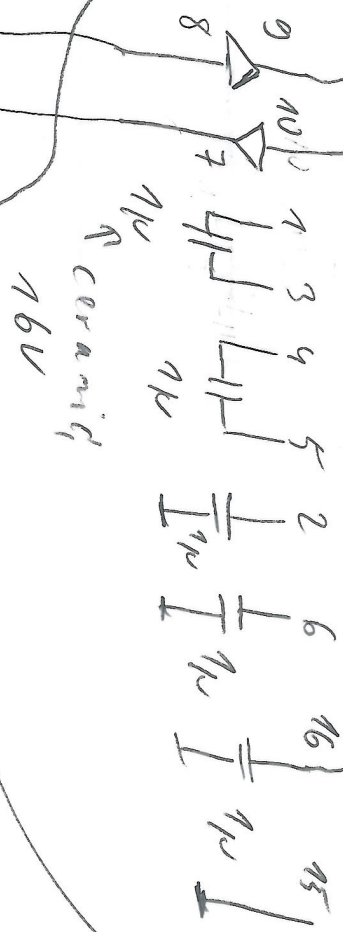 9 10 1 3 4 5 2 6 16 15
8 7
1μ 1μ 1μ 1μ 1μ
↑ ceramic
16V